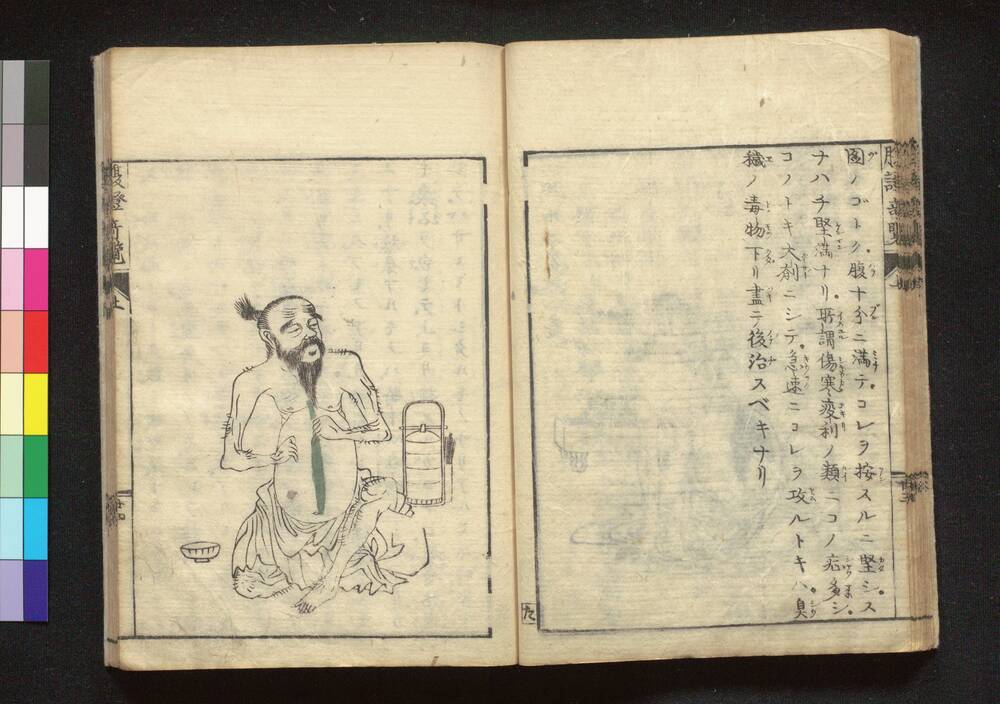 腹證奇覽
圖ノゴトク腹十分ニ滿テコレヲ按スルニ堅シス
ナハチ堅滿ナリ所謂傷寒痢利ノ類ニコノ症多シ
コノトキ大劑ニシテ急速ニコレヲ攻ルトキハ臭
穢ノ毒物下リ盡テ後治スベキナリ
腹證奇覽
上
廿四